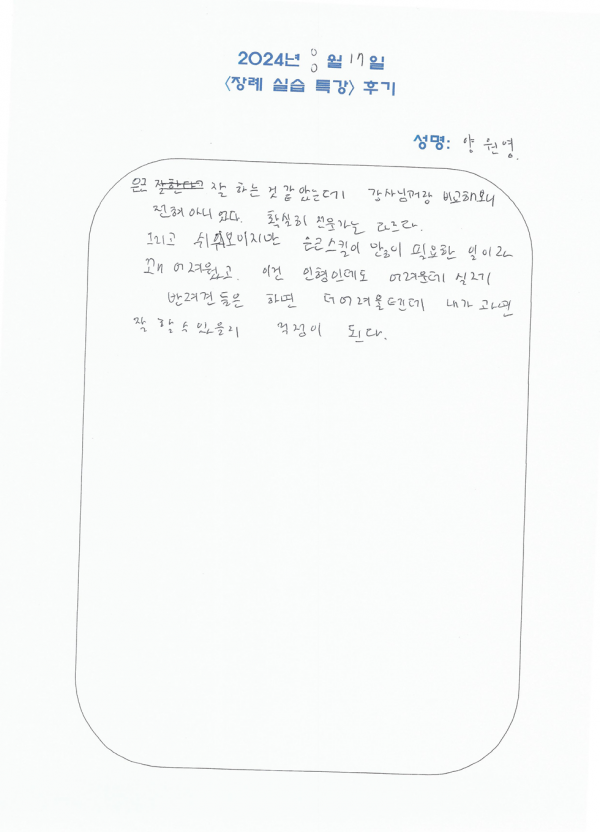 2024년 8월 17일
<장례 실습 특강> 후기
성명: 양원영.
은근 잘한다? 잘 하는 것 같았는데 강사님꺼랑 비교해보니
전혀 아니었다. 확실히 전문가는 다르다.
그리고 쉬워보이지만 은근 스킬이 많이 필요한 일이라
꽤 어려웠고. 이건 인형인데도 어려운데 실제
반려견들은 하면 더 어려울텐데 내가 과연
잘 할 수 있을지 걱정이 된다.